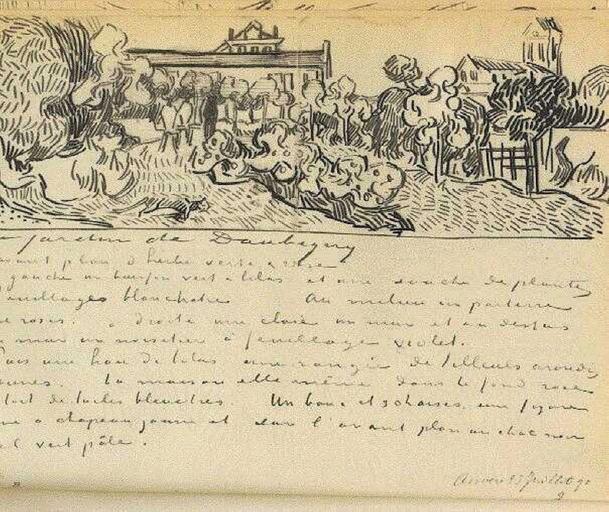 jardin de Daubigny
avant plan d'herbe verte & rose
gauche un buisson vert & lilas et une souche de plantes
feuillages blanchâtre Au milieu un parterre
de roses. à droite une claie un mur et au dessus
du mur un noisetier à feuillage violet.
Puis une haie de lilas une rangée de tilleuls arrondis
jaunes. La maison elle même dans le fond rose
toit de tuiles bleuâtres. Un banc et 3 chaises, une figure
à chapeau jaune et sur l'avant plan un chat noir
vert pâle.
Auvers Juillet 90